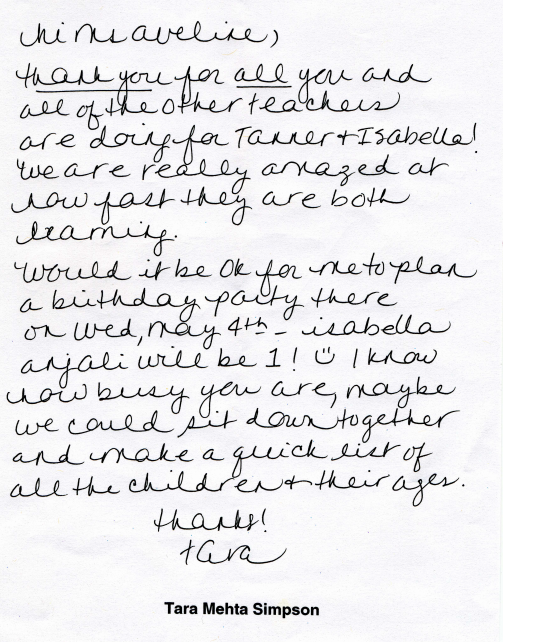 hi Ms aveline,
thank you for all you and
all of the other teachers
are doing for Tanner + Isabella!
We are really amazed at
how fast they are both
learning.
Would it be Ok for me to plan
a birthday party there
on Wed, may 4th - isabella
anjali will be 1! ☺ I know
how busy you are, maybe
we could sit down together
and make a quick list of
all the children + their ages.
thanks!
tara
Tara Mehta Simpson